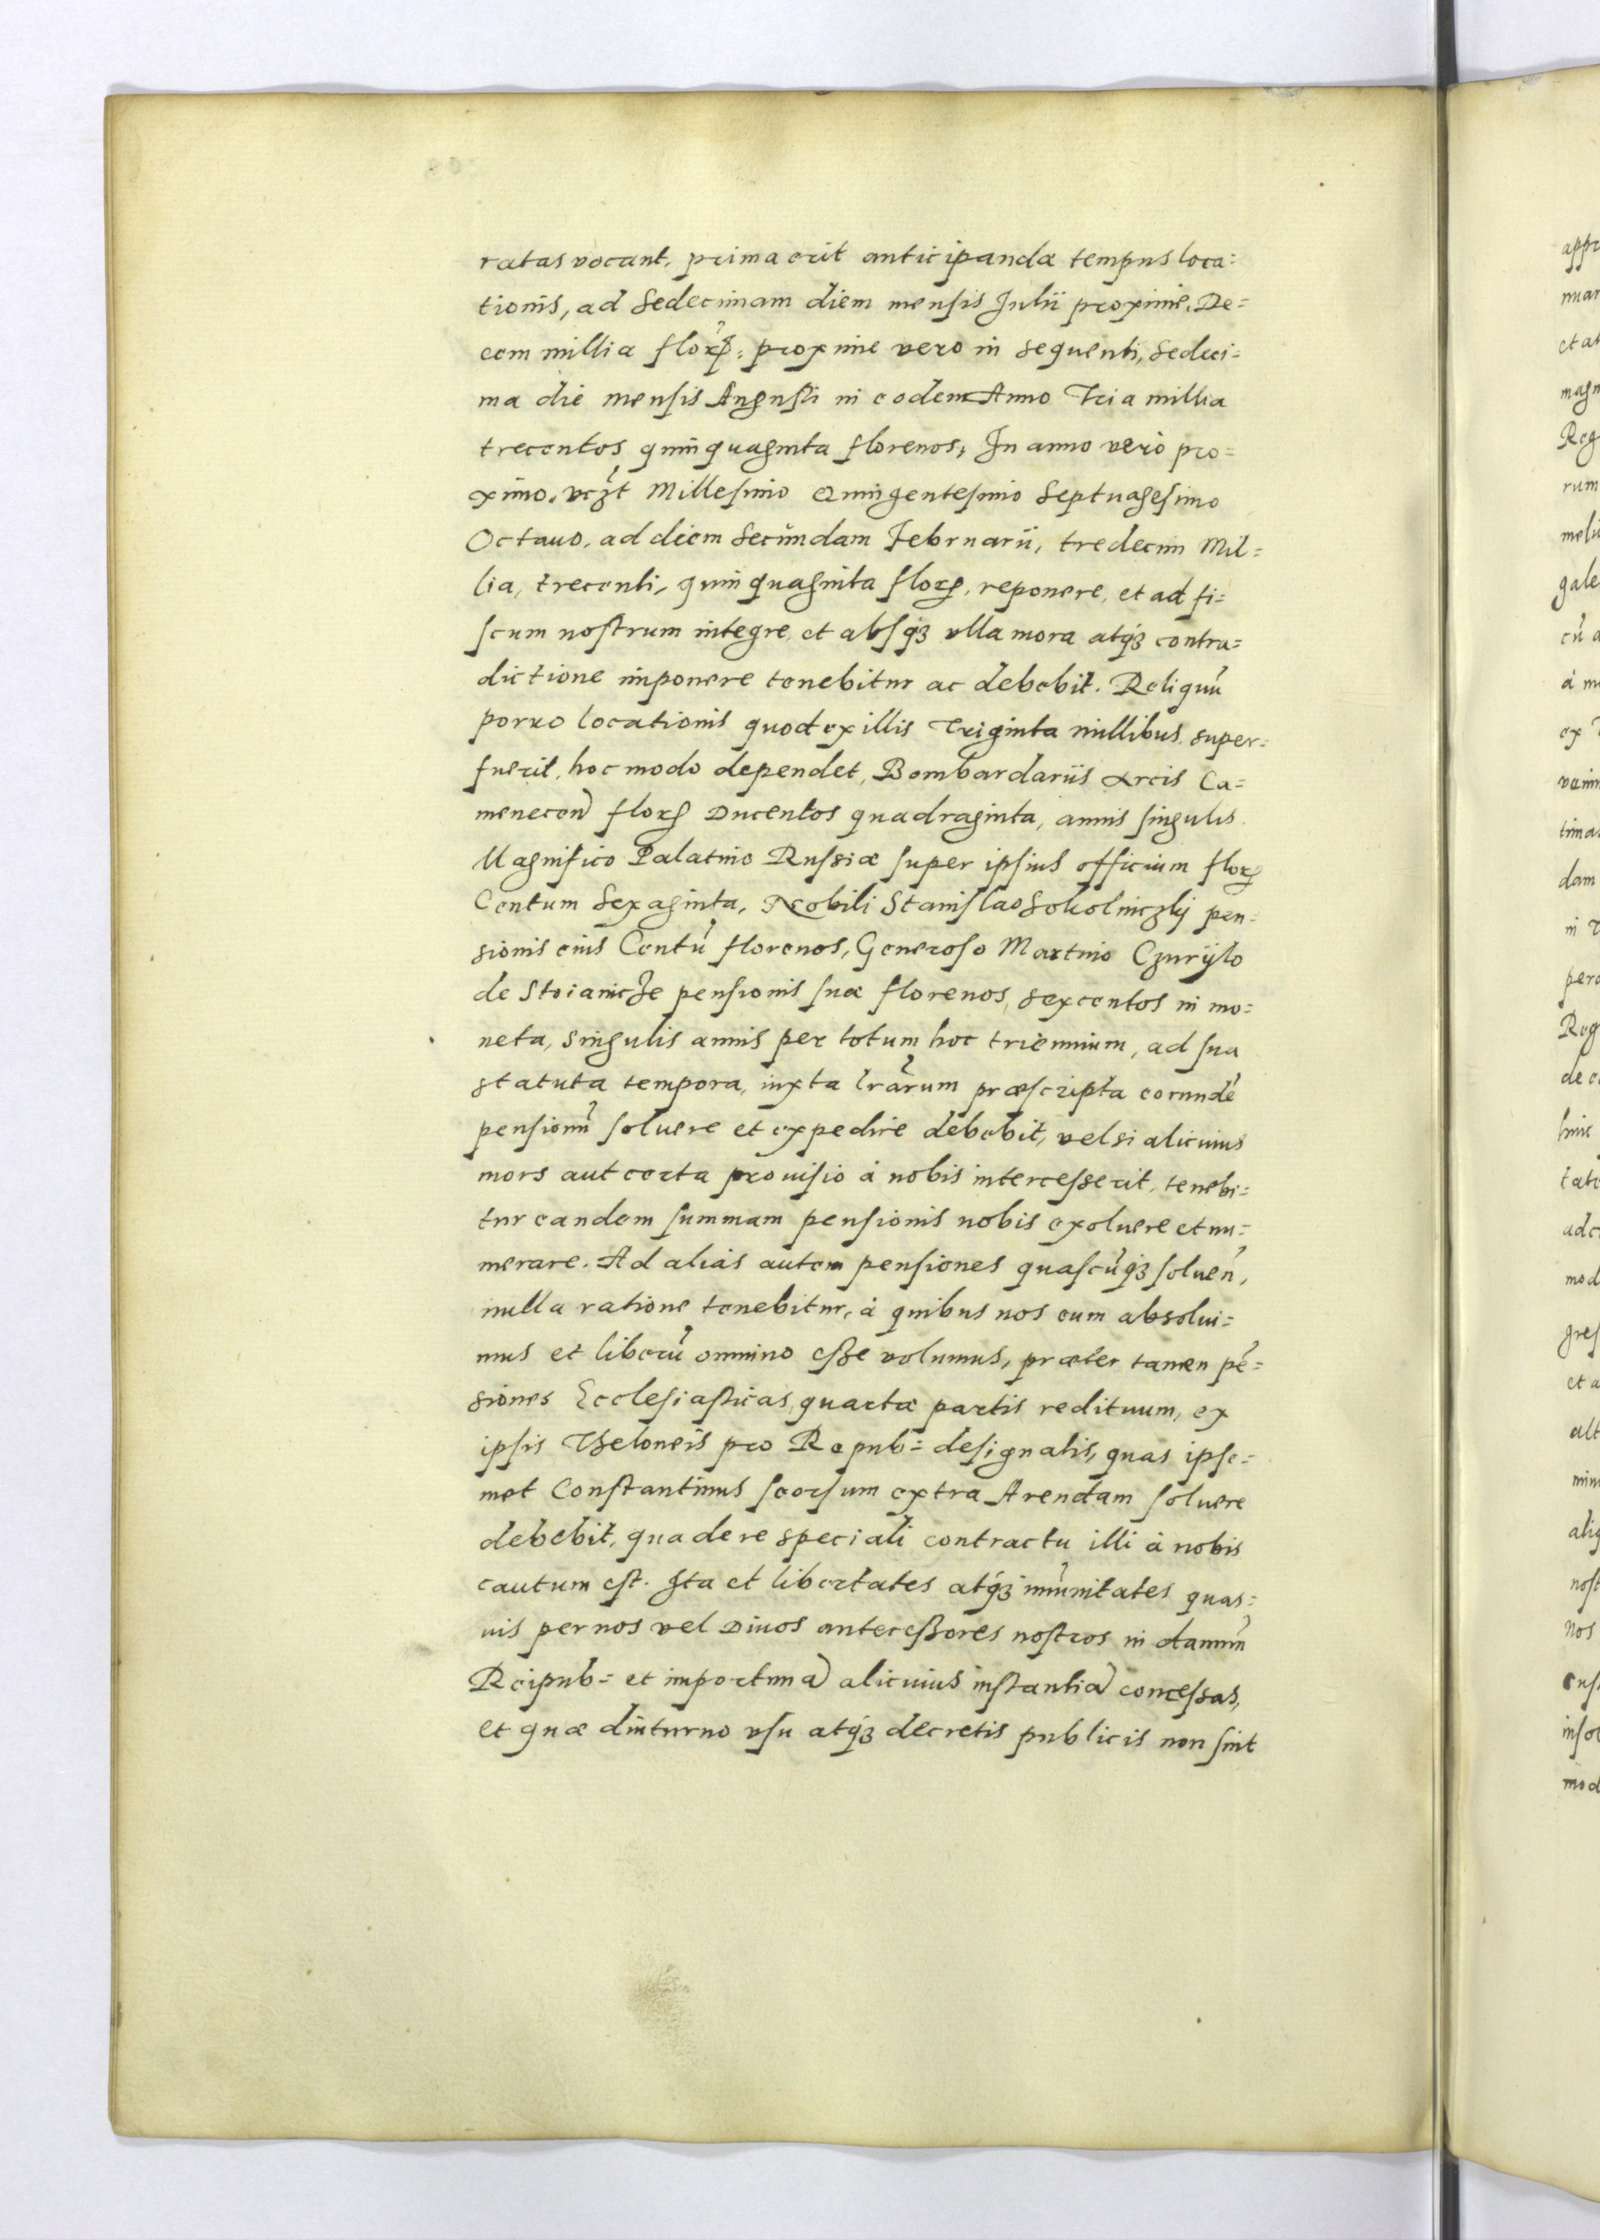 ratas vocant, prima erit anticipandæ tempus loca=
tionis, ad Sedecimam diem mensis Julii proxime, De=
cem millia floꝝ: proxime vero in sequenti, Sedeci=
ma die mensis Augusti in eodem Anno Tria millia
trecentos quinquaginta florenos, In anno vero pro=
ximo, vczt Millesimo Quingentesimo Septuagesimo
Octauo, ad diem Secundam Februarii, tredecim Mil=
lia, trecenti, quinquaginta floꝝ, reponere, et ad fi=
scum nostrum integre, et absqꝫ vlla mora atqꝫ contra=
dictione imponere tenebitur ac debebit. Reliquũ
porro locationis quod ex illis Triginta millibus super=
fuerit, hoc modo dependet, Bombardariis Arcis Ca=
menecen floꝝ Ducentos quadraginta, annis singulis
Magnifico Palatino Russiæ super ipsius officium floꝝ
Centum Sexaginta, Nobili Stanislao Sokolniczky pen=
sionis eius Centũ florenos, Generoso Martino Czuryło
de Stoianicze pensionis suæ florenos sexcentos in mo=
neta, singulis annis per totum hoc triennium, ad sua
statuta tempora, iuxta lrãrum præscripta eorundẽ
pensionũ soluere et expedire debebit, vel si alicuius
mors aut certa prouisio à nobis intercesserit, tenebi=
tur eandem summam pensionis nobis exoluere et nu=
merare. Ad alias autem pensiones quascũqꝫ soluen̄,
nulla ratione tenebitur, à quibus nos eum absolui=
mus et liberũ omnino esse volumus, præter tamen pẽ=
siones Ecclesiasticas, quartæ partis redituum, ex
ipsis Theloneis pro Repub= designatis, quas ipse=
met Constantinus seorsum extra Arendam soluere
debebit, qua de re speciali contractu illi à nobis
cautum est. Ita et libertates atqꝫ imũnitates quas=
uis per nos vel Diuos antecessores nostros in damnũ
Reipub= et importuna alicuius instantia concessas,
et quæ diuturno vsu atqꝫ decretis publicis non sint